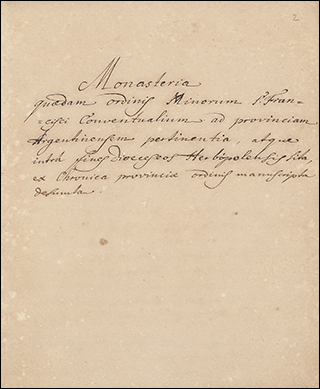 2
Monasteria
quædam ordinis Minorum S. Fran=
=cisci Conventualium ad provinciam
Argentinensem pertinentia, atque
intra fines Dioeceseos Herbipolensis sita,
ex Chronica provinciæ ordinis manuscripta
desumta.